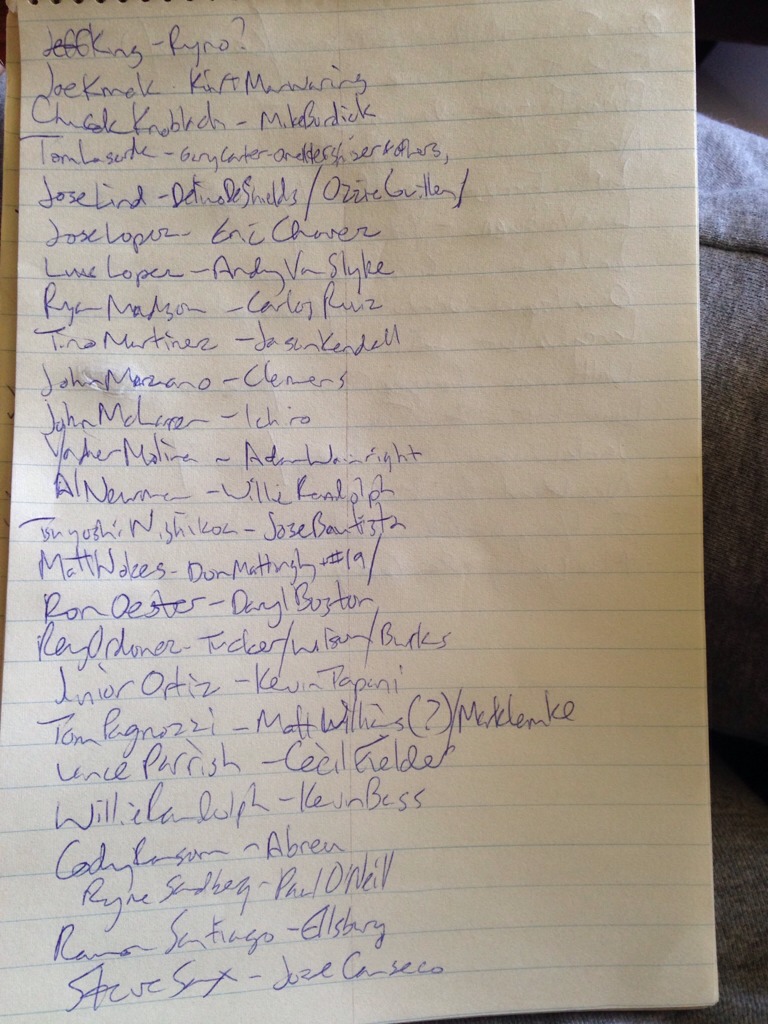 Jeff King - Ryno?
Joe Kmak - Kirt Manwaring
Chuck Knoblach - Mike Burdick
Tom Lasorda - Gary Carter - Orel Hershiser & others,
Jose Lind - Delino DeShields / Ozzie Guillen /
Jose Lopez - Eric Chavez
Luis Lopez - Andy Van Slyke
Ryan Madson - Carlos Ruiz
Tino Martinez - Jason Kendall
John Marzano - Clemens
John McLaren - Ichiro
Yadier Molina - Adam Wainwright
Al Newman - Willie Randolph
Tsuyoshi Nishikoa - Jose Bautista
Matt Nokes - Don Mattingly + #19 /
Ron Oester - Daryl Boston
Rey Ordonez - Tucker / Wilson / Burks
Junior Ortiz - Kevin Tapani
Tom Pagnozzi - Matt Williams (?) / Mark Lemke
Lance Parrish - Cecil Fielder
Willie Randolph - Kevin Bass
Cody Ransom - Abreu
Ryne Sandberg - Paul O'Neill
Ramon Santiago - Ellsbury
Steve Sax - Jose Canseco